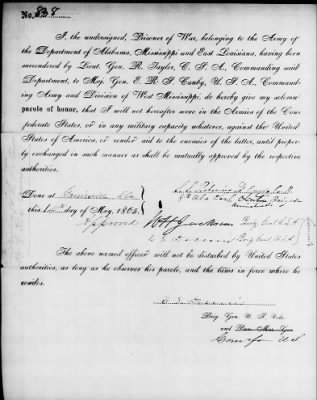 No. 838
I, the undersigned, Prisoner of War, belonging to the Army of
the Department of Alabama, Mississippi and East Louisiana, having been
surrendered by Lieut. Gen. R. Taylor, C. S. A., Commanding said
Department, to Maj. Gen. E. R. S. Canby, U. S. A., Command-
ing Army and Division of West Mississippi, do hereby give my solemn
parole of honor, that I will not hereafter serve in the Armies of the Con-
federate States, or in any military capacity whatever, against the United
States of America, or render aid to the enemies of the latter, until prop-
erly exchanged in such manner as shall be mutually approved by the respective
authorities.
Done at Gainesville Ala
this day of May, 1865.
Approved W H Jackson Brig. Genl C.S.A
E. S. Dennis Brig Genl U.S.A
The above named officer will not be disturbed by United States
authorities, as long as he observes his parole, and the laws in force where he
resides.
E. S. Dennis
Brig. Gen. U. S. Vols
and
Com'r for U S